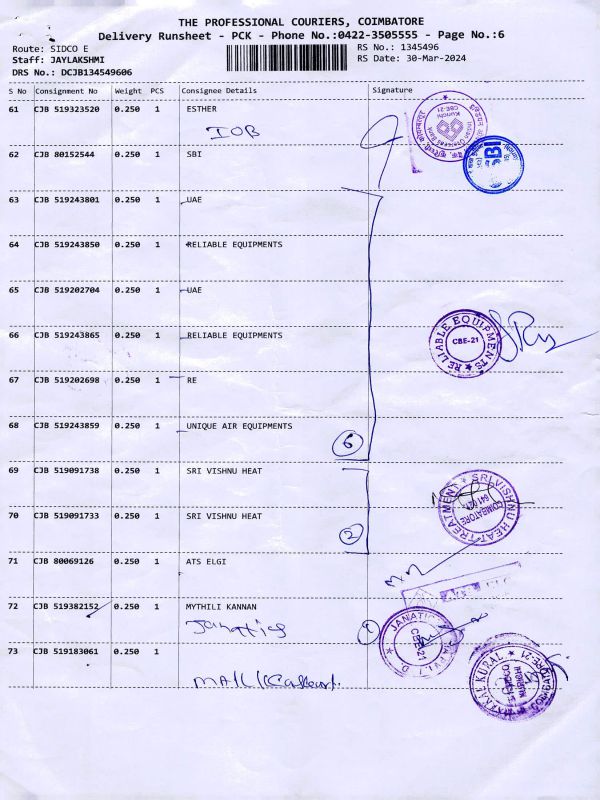 THE PROFESSIONAL COURIERS, COIMBATORE
Delivery Runsheet - PCK - Phone No.:0422-3505555 - Page No.:6
Route: SIDCO E
RS No.: 1345496
Staff: JAYLAKSHMI
RS Date: 30-Mar-2024
DRS No.: DCJB134549606
S No Consignment No Weight PCS Consignee Details Signature
61 CJB 519323520 0.250 1 ESTHER
IOB
62 CJB 80152544 0.250 1 SBI
63 CJB 519243801 0.250 1 UAE
64 CJB 519243850 0.250 1 RELIABLE EQUIPMENTS
65 CJB 519202704 0.250 1 UAE
66 CJB 519243865 0.250 1 RELIABLE EQUIPMENTS
RELIABLE EQUIPMENTS
CBE-21
67 CJB 519202698 0.250 1 RE
68 CJB 519243859 0.250 1 UNIQUE AIR EQUIPMENTS
6
69 CJB 519091738 0.250 1 SRI VISHNU HEAT
SRI VISHNU HEAT TREATMENT
COIMBATORE
70 CJB 519091733 0.250 1 SRI VISHNU HEAT
2
71 CJB 80069126 0.250 1 ATS ELGI
72 CJB 519382152 0.250 1 MYTHILI KANNAN
Janatics
JANATICS
CBE-21
73 CJB 519183061 0.250 1